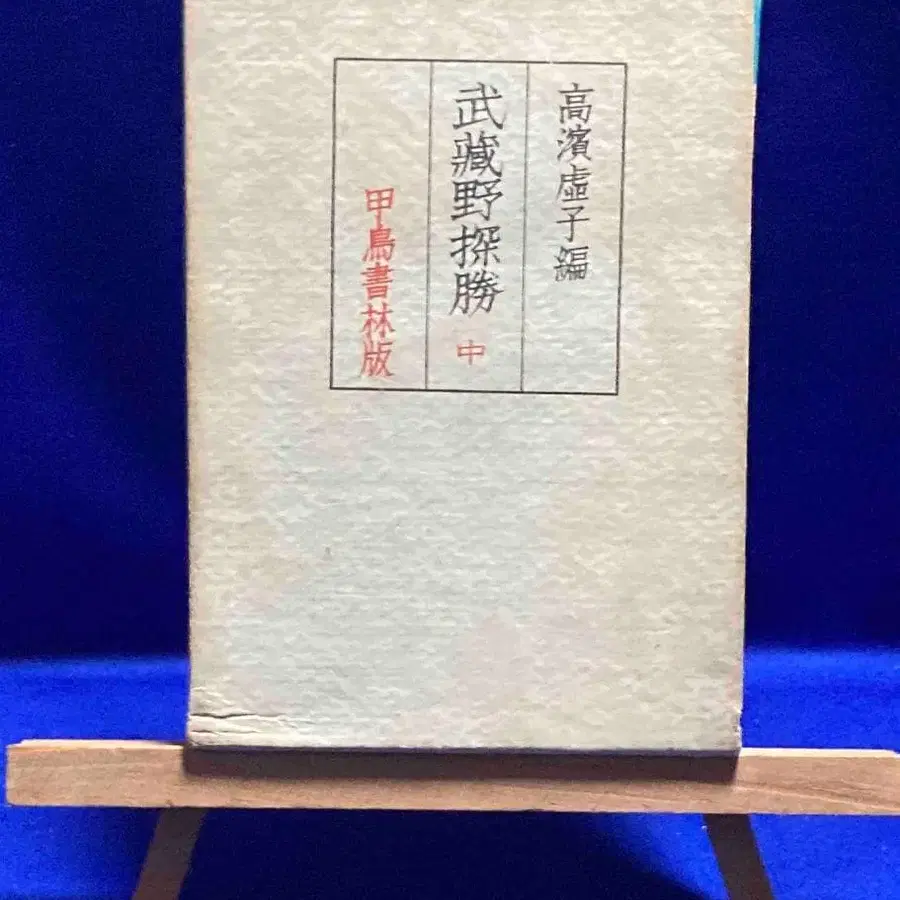 高濱虛子編
武藏野探勝 中
甲鳥書林版